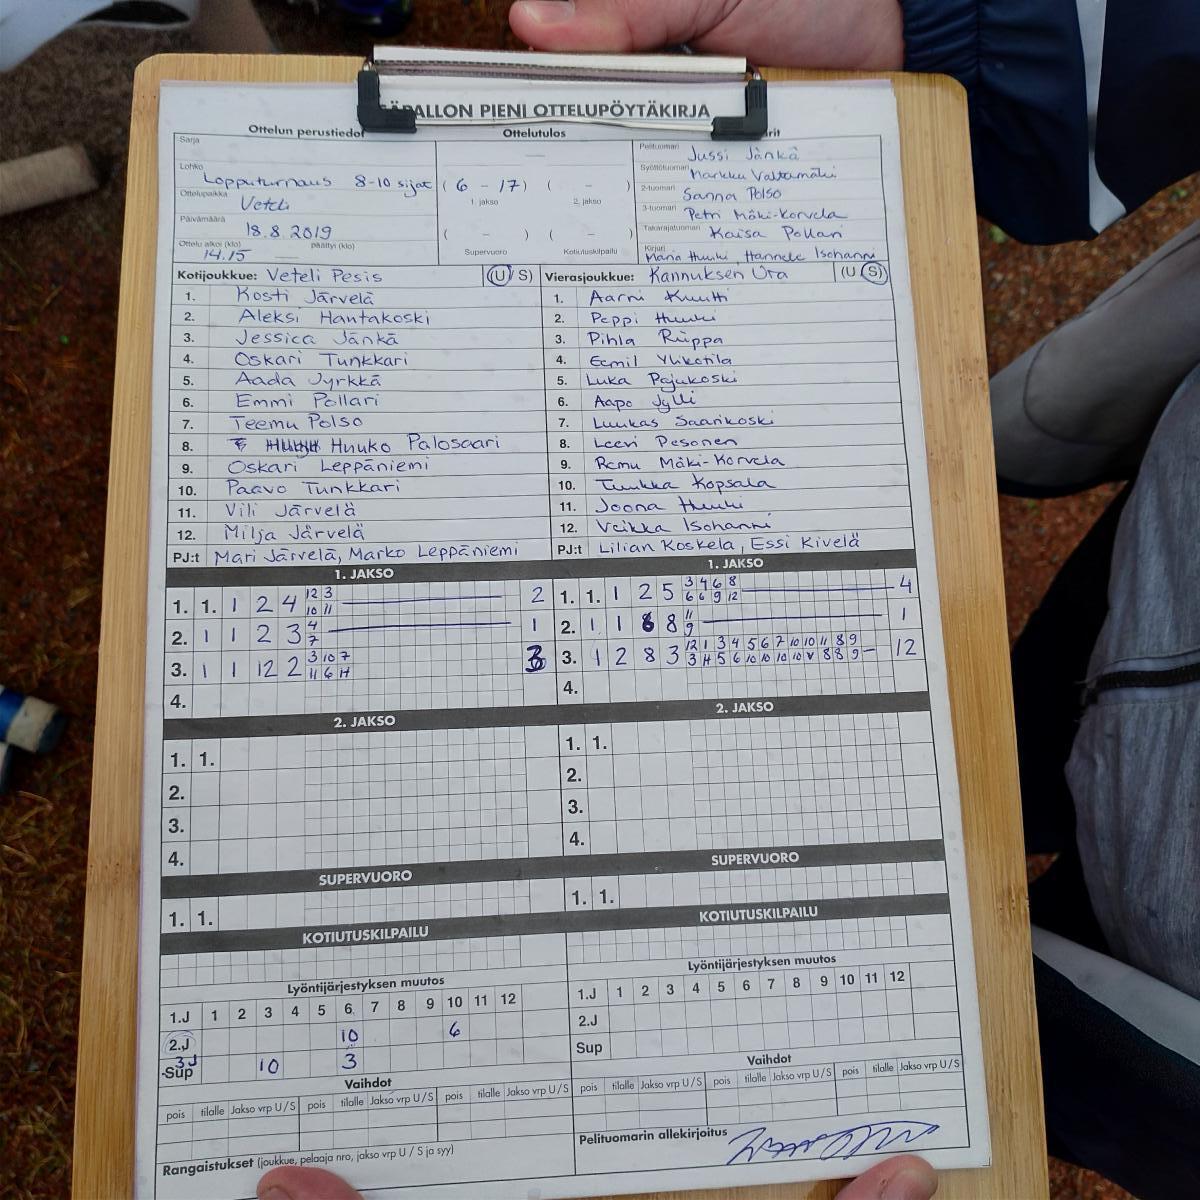 PALLON PIENI OTTELUPÖYTÄKIRJA
Ottelun perustiedot Ottelutulos
Sarja
Lohko
Lopputurnaus 8-10 sijat
Ottelupaikka
Veteli
Päivämäärä
18.8.2019
Ottelu alkoi (klo) päättyi (klo)
14.15
( 6 - 17 ) ( - )
1. jakso 2. jakso
( - ) ( - )
Supervuoro Kotiutuskilpailu
Pelituomari Jussi Jänkä
Syöttötuomari Markku Valtamäki
2-tuomari Sanna Polso
3-tuomari Petri Mäki-Korvela
Takarajatuomari Kaisa Pollari
Kirjuri Maria Huuki, Hannele Isohanni
Kotijoukkue: Veteli Pesis (U/ S)
1. Kosti Järvelä
2. Aleksi Hantakoski
3. Jessica Jänkä
4. Oskari Tunkkari
5. Aada Jyrkkä
6. Emmi Pollari
7. Teemu Polso
8. Huuko Palosaari
9. Oskari Leppäniemi
10. Paavo Tunkkari
11. Vili Järvelä
12. Milja Järvelä
PJ:t Mari Järvelä, Marko Leppäniemi
Vierasjoukkue: Kannuksen Ura (U / S)
1. Aarni Kuutti
2. Peppi Huuki
3. Pihla Riippa
4. Eemil Ylikotila
5. Luka Pajukoski
6. Aapo Jylli
7. Luukas Saarikoski
8. Leevi Pesonen
9. Remu Mäki-Korvela
10. Tuukka Kopsala
11. Joona Huuki
12. Veikka Isohanni
PJ:t Lilian Koskela, Essi Kivelä
1. JAKSO
1. 1. 1 2 4 12 3 2
10 11
2. 1 1 2 3 4 1
7
3. 1 1 12 2 3 10 7 3
11 6 H
4.
1. JAKSO
1. 1. 1 2 5 3 4 6 8 4
6 6 9 12
2. 1 1 8 8 11 1
9
3. 1 2 8 3 12 1 3 4 5 6 7 10 10 11 8 9 12
3 H 5 6 10 10 10 10 V 8 8 9
4.
2. JAKSO
1. 1.
2.
3.
4.
2. JAKSO
1. 1.
2.
3.
4.
SUPERVUORO
1. 1.
SUPERVUORO
1. 1.
KOTIUTUSKILPAILU
KOTIUTUSKILPAILU
Lyöntijärjestyksen muutos
1.J 1 2 3 4 5 6 7 8 9 10 11 12
2.J 10 6
3J
Sup 10 3
Vaihdot
pois tilalle Jakso vrp U/S pois tilalle Jakso vrp U/S pois tilalle Jakso vrp U/S
Rangaistukset (joukkue, pelaaja nro, jakso vrp U / S ja syy)
Lyöntijärjestyksen muutos
1.J 1 2 3 4 5 6 7 8 9 10 11 12
2.J
Sup
Vaihdot
pois tilalle Jakso vrp U/S pois tilalle Jakso vrp U/S pois tilalle Jakso vrp U/S
Pelituomarin allekirjoitus